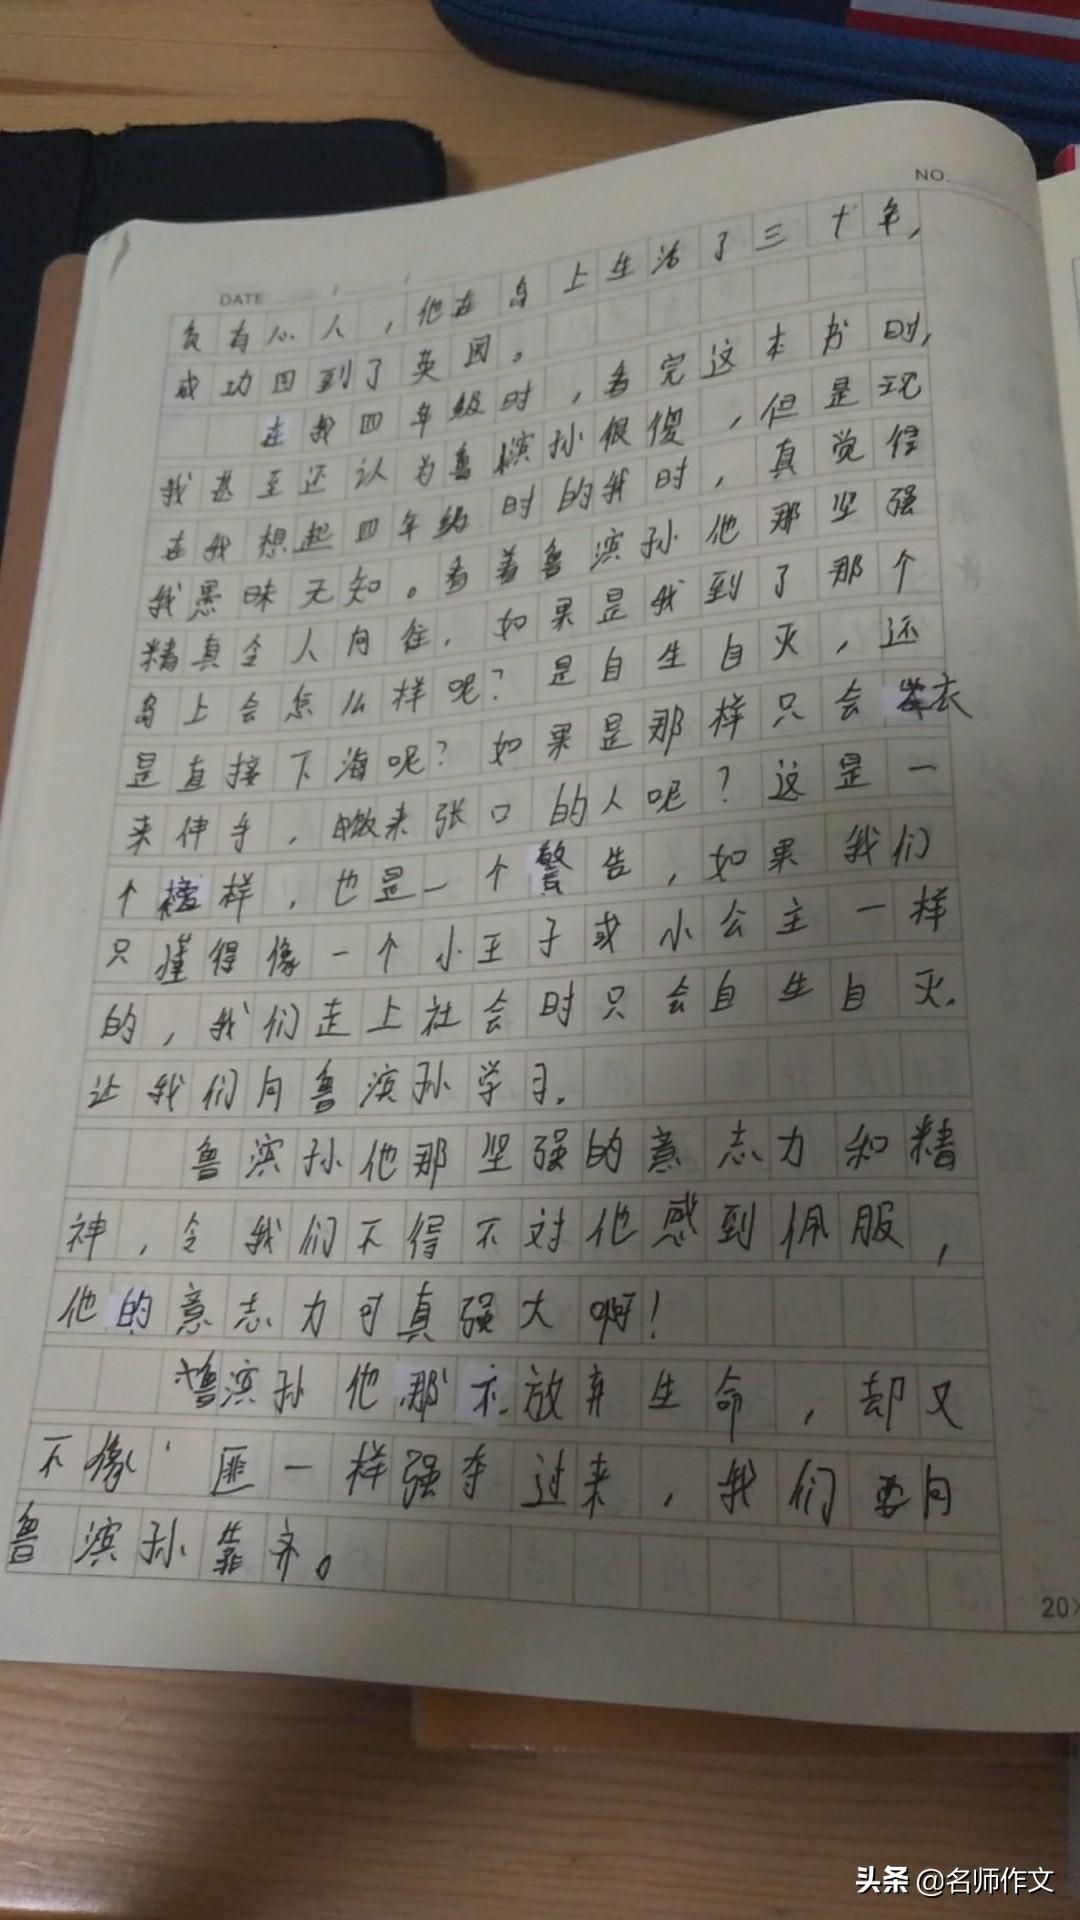 NO.
DATE
负有心人，他在岛上生活了三十年，
成功回到了英国。
在我四年级时，看完这本书时，
我甚至还认为鲁槟孙很傻，但是现
在我想起四年级时的我时，真觉得
我愚昧无知。看着鲁滨孙他那坚强
精真令人向往，如果是我到了那个
岛上会怎么样呢？是自生自灭，还
是直接下海呢？如果是那样只会 衣
来伸手，饭来张口的人呢？这是一
个榜样，也是一个警告，如果我们
只懂得像一个小王子或小公主一样
的，我们走上社会时只会自生自灭.
让我们向鲁滨孙学习.
鲁滨孙他那坚强的意志力和精
神，令我们不得不对他感到佩服，
他的意志力可真强大啊！
鲁滨孙他那不放弃生命，却又
不像 匪一样强夺过来，我们要向
鲁滨孙靠齐。
20×
头条 @名师作文